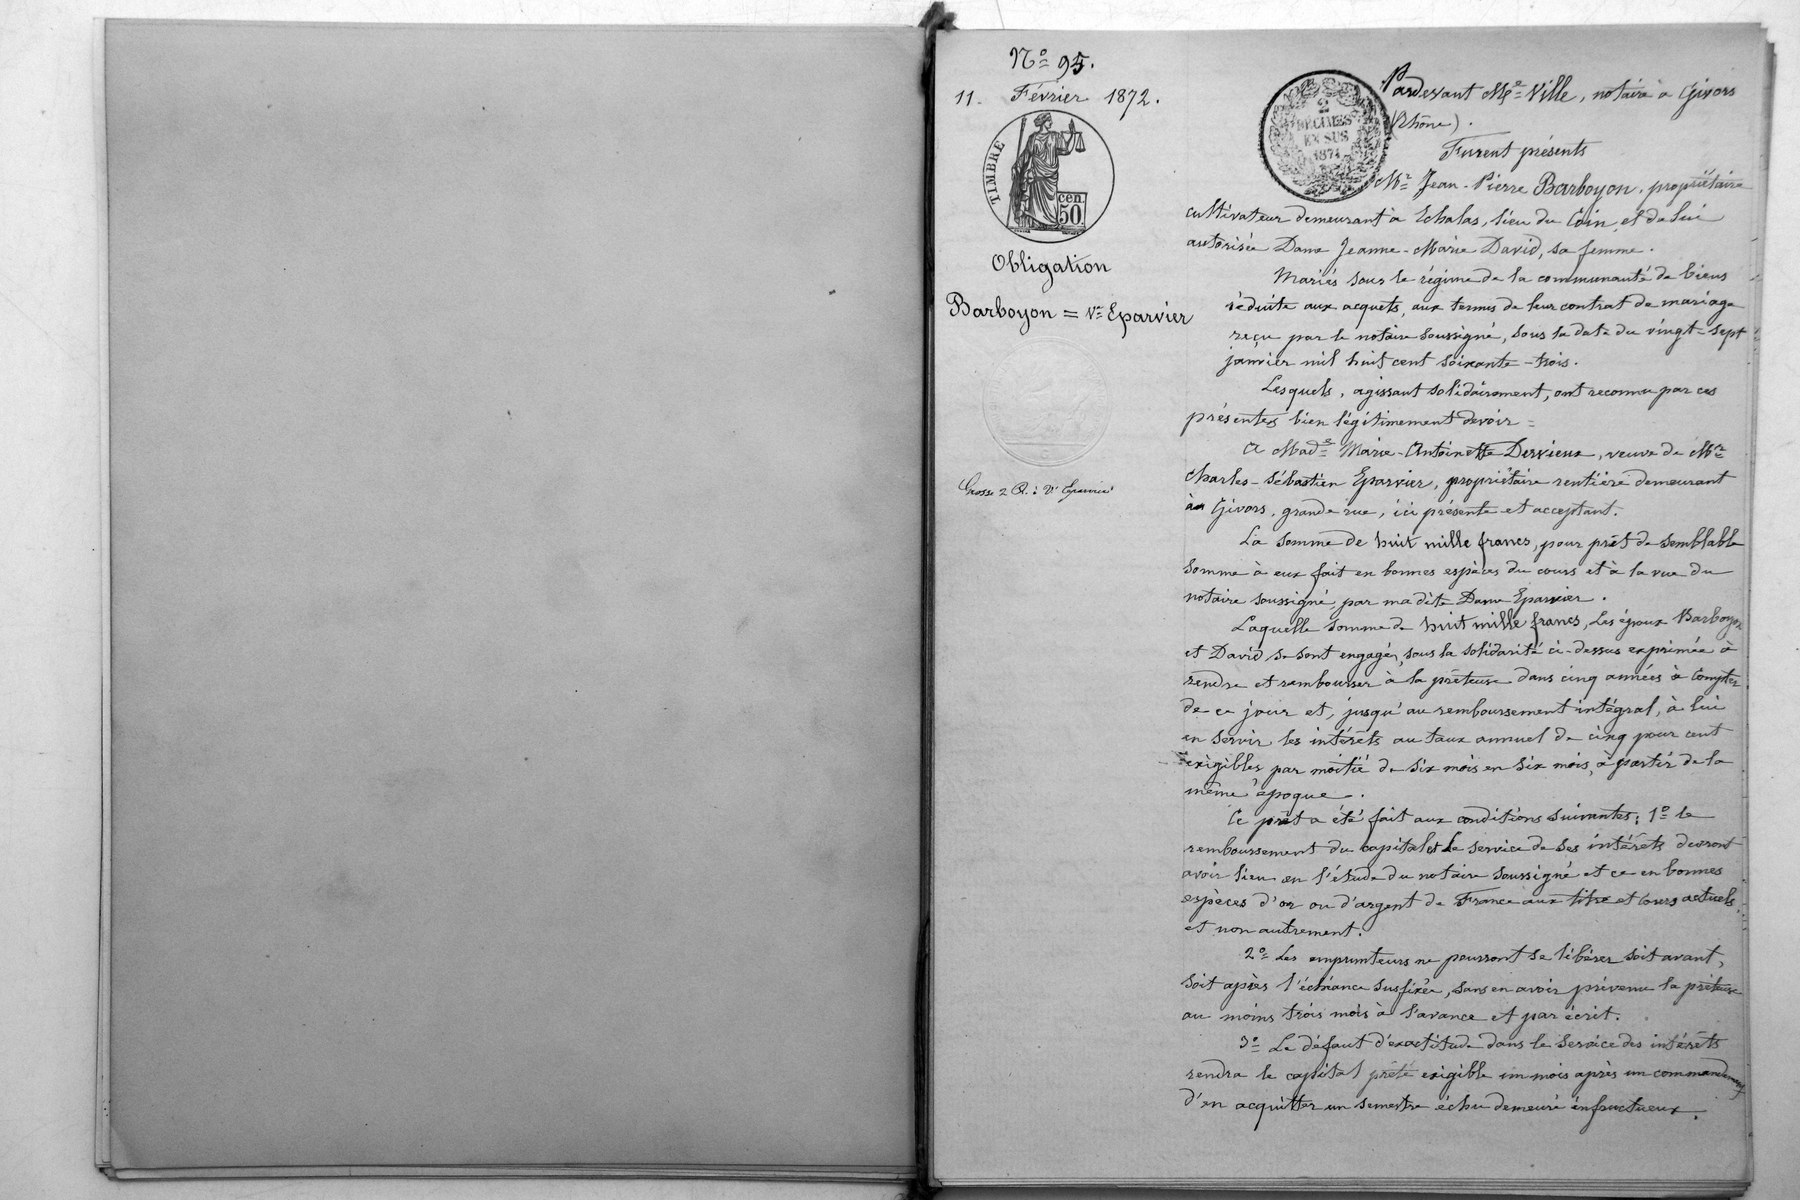 Nº 95.
11. Février 1872.
TIMBRE
cen.
50
Obligation
Barboyon = Vve Eparvier
Grosse 2 R. à Vve Eparvier
2
DÉCIMES
EN SUS
1871
Pardevant Me Ville, notaire à Givors
(Rhône).
Furent présents
Mr Jean-Pierre Barboyon, propriétaire
cultivateur demeurant à Echalas, lieu du Coin, et de lui
autorisée Dame Jeanne-Marie David, sa femme.
Mariés sous le régime de la communauté de biens
réduite aux acquets, aux termes de leur contrat de mariage
reçu par le notaire soussigné, sous la date du vingt-sept
janvier mil huit cent soixante-trois.
Lesquels, agissant solidairement, ont reconnu par ces
présentes bien légitimement devoir =
A Made Marie-Antoinette Dervieux, veuve de Mr
Charles-Sébastien Eparvier, propriétaire rentière demeurant
à Givors, grande rue, ici présente et acceptant.
La somme de huit mille francs, pour prêt de semblable
somme à eux fait en bonnes espèces du cours et à la vue du
notaire soussigné, par ma dite Dame Eparvier.
Laquelle somme de huit mille francs, les époux Barboyon
et David se sont engagés, sous la solidarité ci-dessus exprimée à
rendre et rembourser à la prêteuse dans cinq années à compter
de ce jour et, jusqu'au remboursement intégral, à lui
en servir les intérêts au taux annuel de cinq pour cent
exigibles par moitié de six mois en six mois, à partir de la
même époque.
Ce prêt a été fait aux conditions suivantes: 1º le
remboursement du capital et le service de ses intérêts devront
avoir lieu en l'étude du notaire soussigné et ce en bonnes
espèces d'or ou d'argent de France aux titre et cours actuels,
et non autrement.
2º Les emprunteurs ne pourront se libérer soit avant,
soit après l'échéance susfixée, sans en avoir prévenu la prêteuse
au moins trois mois à l'avance et par écrit.
3º Le défaut d'exactitude dans le service des intérêts
rendra le capital prêté exigible un mois après un commandement
d'en acquitter un semestre échu demeuré infructueux.